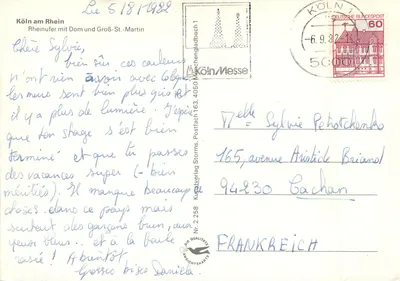 Köln am Rhein
Rheinufer mit Dom und Groß-St.-Martin
Le 5/8/1982
Chère Sylvie,
bien sûr, ces couleurs
n'ont rien à voir avec
les murs sont bien plus gris et
il y a plus de lumière. J'espère
que ton stage s'est bien
terminé et que tu passes
des vacances super (- bien
méritées). Il manque beaucoup de
choses dans ce pays mais
surtout des garçons bien, aux
yeux bleus... et à la boule
rasée! A bientôt
Grosses bises Daniela
KölnMesse
KÖLN
6.9.82
5000
DEUTSCHE BUNDESPOST
60
Nr. 2.258
DIE QUALITÄTS
Melle Sylvie
165, avenue Aristide Briand
94230 Cachan
FRANKREICH